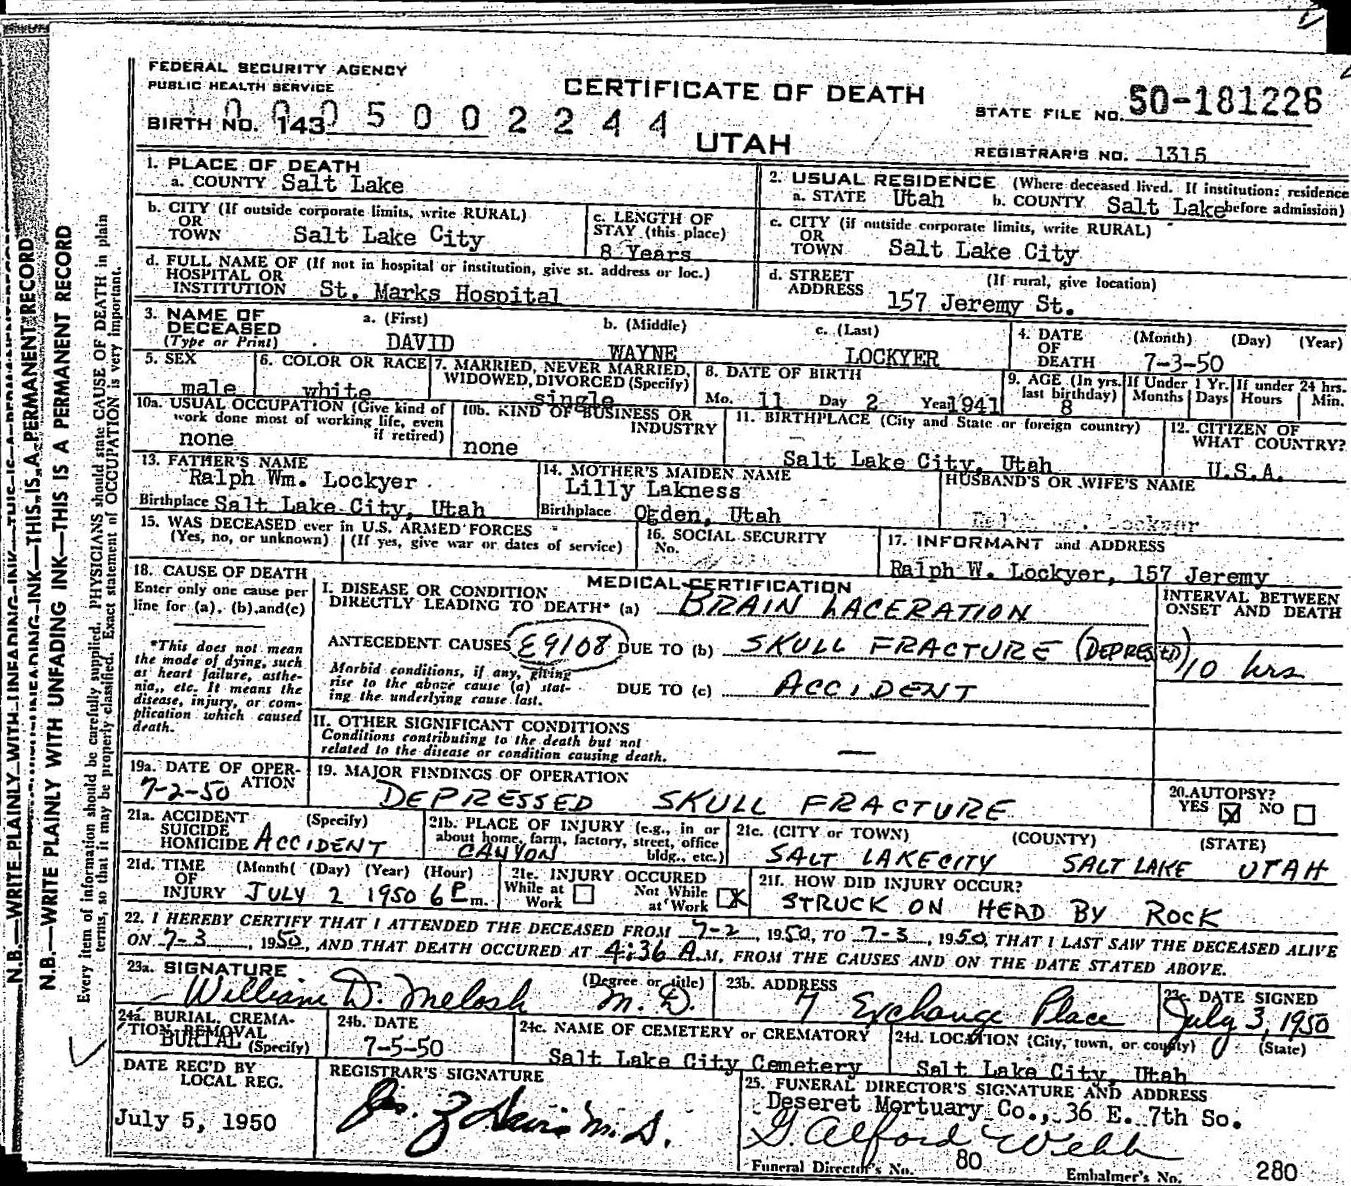 FEDERAL SECURITY AGENCY
PUBLIC HEALTH SERVICE
CERTIFICATE OF DEATH
UTAH
STATE FILE NO. 50-181226
BIRTH NO. 143 0005002244
REGISTRAR'S NO. 1315
1. PLACE OF DEATH
a. COUNTY Salt Lake
2. USUAL RESIDENCE (Where deceased lived. If institution: residence before admission)
a. STATE Utah b. COUNTY Salt Lake
b. CITY (If outside corporate limits, write RURAL)
OR
TOWN Salt Lake City
c. LENGTH OF
STAY (this place)
8 Years
c. CITY (if outside corporate limits, write RURAL)
OR
TOWN Salt Lake City
d. FULL NAME OF (If not in hospital or institution, give st. address or loc.)
HOSPITAL OR
INSTITUTION St. Marks Hospital
d. STREET (If rural, give location)
ADDRESS 157 Jeremy St.
3. NAME OF
DECEASED
(Type or Print)
a. (First) DAVID
b. (Middle) WAYNE
c. (Last) LOCKYER
4. DATE (Month) (Day) (Year)
OF
DEATH 7-3-50
5. SEX
male
6. COLOR OR RACE
white
7. MARRIED, NEVER MARRIED,
WIDOWED, DIVORCED (Specify)
single
8. DATE OF BIRTH
Mo. 11 Day 2 Year 1941
9. AGE (In yrs.
last birthday)
8
If Under 1 Yr.
Months Days
If under 24 hrs.
Hours Min.
10a. USUAL OCCUPATION (Give kind of
work done most of working life, even
if retired)
none
10b. KIND OF BUSINESS OR
INDUSTRY
none
11. BIRTHPLACE (City and State or foreign country)
Salt Lake City, Utah
12. CITIZEN OF
WHAT COUNTRY?
U.S.A.
13. FATHER'S NAME
Ralph Wm. Lockyer
Birthplace Salt Lake City, Utah
14. MOTHER'S MAIDEN NAME
Lilly Lakness
Birthplace Ogden, Utah
HUSBAND'S OR WIFE'S NAME
15. WAS DECEASED ever in U.S. ARMED FORCES
(Yes, no, or unknown) (If yes, give war or dates of service)
16. SOCIAL SECURITY
No.
17. INFORMANT and ADDRESS
Ralph W. Lockyer, 157 Jeremy
18. CAUSE OF DEATH
Enter only one cause per
line for (a), (b), and (c)
*This does not mean
the mode of dying, such
as heart failure, asthe-
nia, etc. It means the
disease, injury, or com-
plication which caused
death.
MEDICAL CERTIFICATION
I. DISEASE OR CONDITION
DIRECTLY LEADING TO DEATH* (a) BRAIN LACERATION
ANTECEDENT CAUSES E9108 DUE TO (b) SKULL FRACTURE (DEPRESSED)
Morbid conditions, if any, giving
rise to the above cause (a) stat-
ing the underlying cause last.
DUE TO (c) ACCIDENT
INTERVAL BETWEEN
ONSET AND DEATH
10 hrs
II. OTHER SIGNIFICANT CONDITIONS
Conditions contributing to the death but not
related to the disease or condition causing death.
—
19a. DATE OF OPER-
ATION
7-2-50
19. MAJOR FINDINGS OF OPERATION
DEPRESSED SKULL FRACTURE
20. AUTOPSY?
YES ☒ NO ☐
21a. ACCIDENT (Specify)
SUICIDE
HOMICIDE ACCIDENT
21b. PLACE OF INJURY (e.g., in or
about home, farm, factory, street, office
bldg., etc.)
CANYON
21c. (CITY or TOWN) (COUNTY) (STATE)
SALT LAKE CITY SALT LAKE UTAH
21d. TIME (Month) (Day) (Year) (Hour)
OF
INJURY JULY 2 1950 6 P m.
21e. INJURY OCCURED
While at Work ☐ Not While at Work ☒
21f. HOW DID INJURY OCCUR?
STRUCK ON HEAD BY ROCK
22. I HEREBY CERTIFY THAT I ATTENDED THE DECEASED FROM 7-2, 1950, TO 7-3, 1950, THAT I LAST SAW THE DECEASED ALIVE
ON 7-3, 1950, AND THAT DEATH OCCURED AT 4:36 A.M, FROM THE CAUSES AND ON THE DATE STATED ABOVE.
23a. SIGNATURE (Degree or title)
William D. Melosh M.D.
23b. ADDRESS
7 Exchange Place
23c. DATE SIGNED
July 3, 1950
24a. BURIAL, CREMA-
TION, REMOVAL
BURIAL (Specify)
24b. DATE
7-5-50
24c. NAME OF CEMETERY or CREMATORY
Salt Lake City Cemetery
24d. LOCATION (City, town, or county) (State)
Salt Lake City, Utah
DATE REC'D BY
LOCAL REG.
July 5, 1950
REGISTRAR'S SIGNATURE
25. FUNERAL DIRECTOR'S SIGNATURE AND ADDRESS
Deseret Mortuary Co., 36 E. 7th So.
G. Alford Webb
Funeral Director's No. 80 Embalmer's No. 280
N.B.—WRITE PLAINLY WITH UNFADING INK—THIS IS A PERMANENT RECORD
N.B.—WRITE PLAINLY WITH UNFADING INK—THIS IS A PERMANENT RECORD
Every item of information should be carefully supplied. PHYSICIANS should state CAUSE OF DEATH in plain
terms, so that it may be properly classified. Exact statement of OCCUPATION is very important.